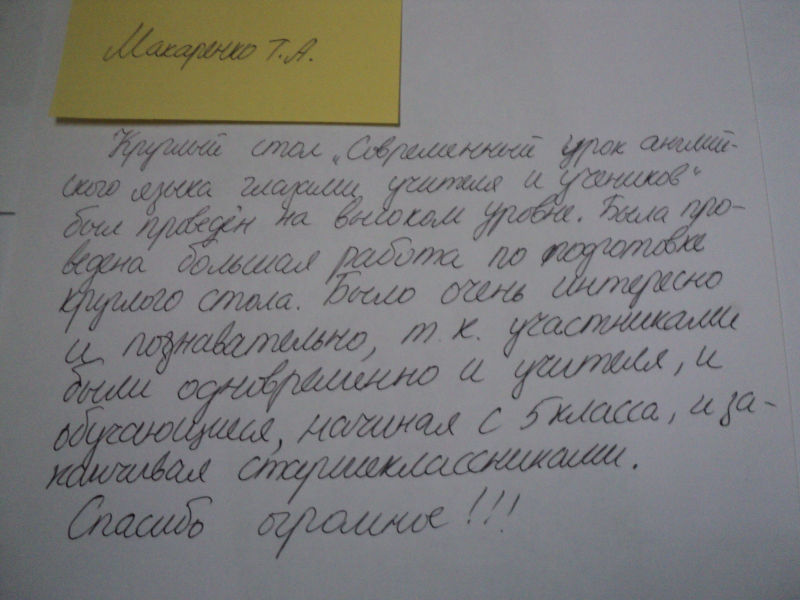 Макаренко Т.А.
Круглый стол „Современный урок англий-
ского языка глазами учителя и учеников"
был проведён на высоком уровне. Была про-
ведена большая работа по подготовке
круглого стола. Было очень интересно
и познавательно, т.к. участниками
были одновременно и учителя, и
обучающиеся, начиная с 5 класса, и за-
канчивая старшеклассниками.
Спасибо огромное!!!